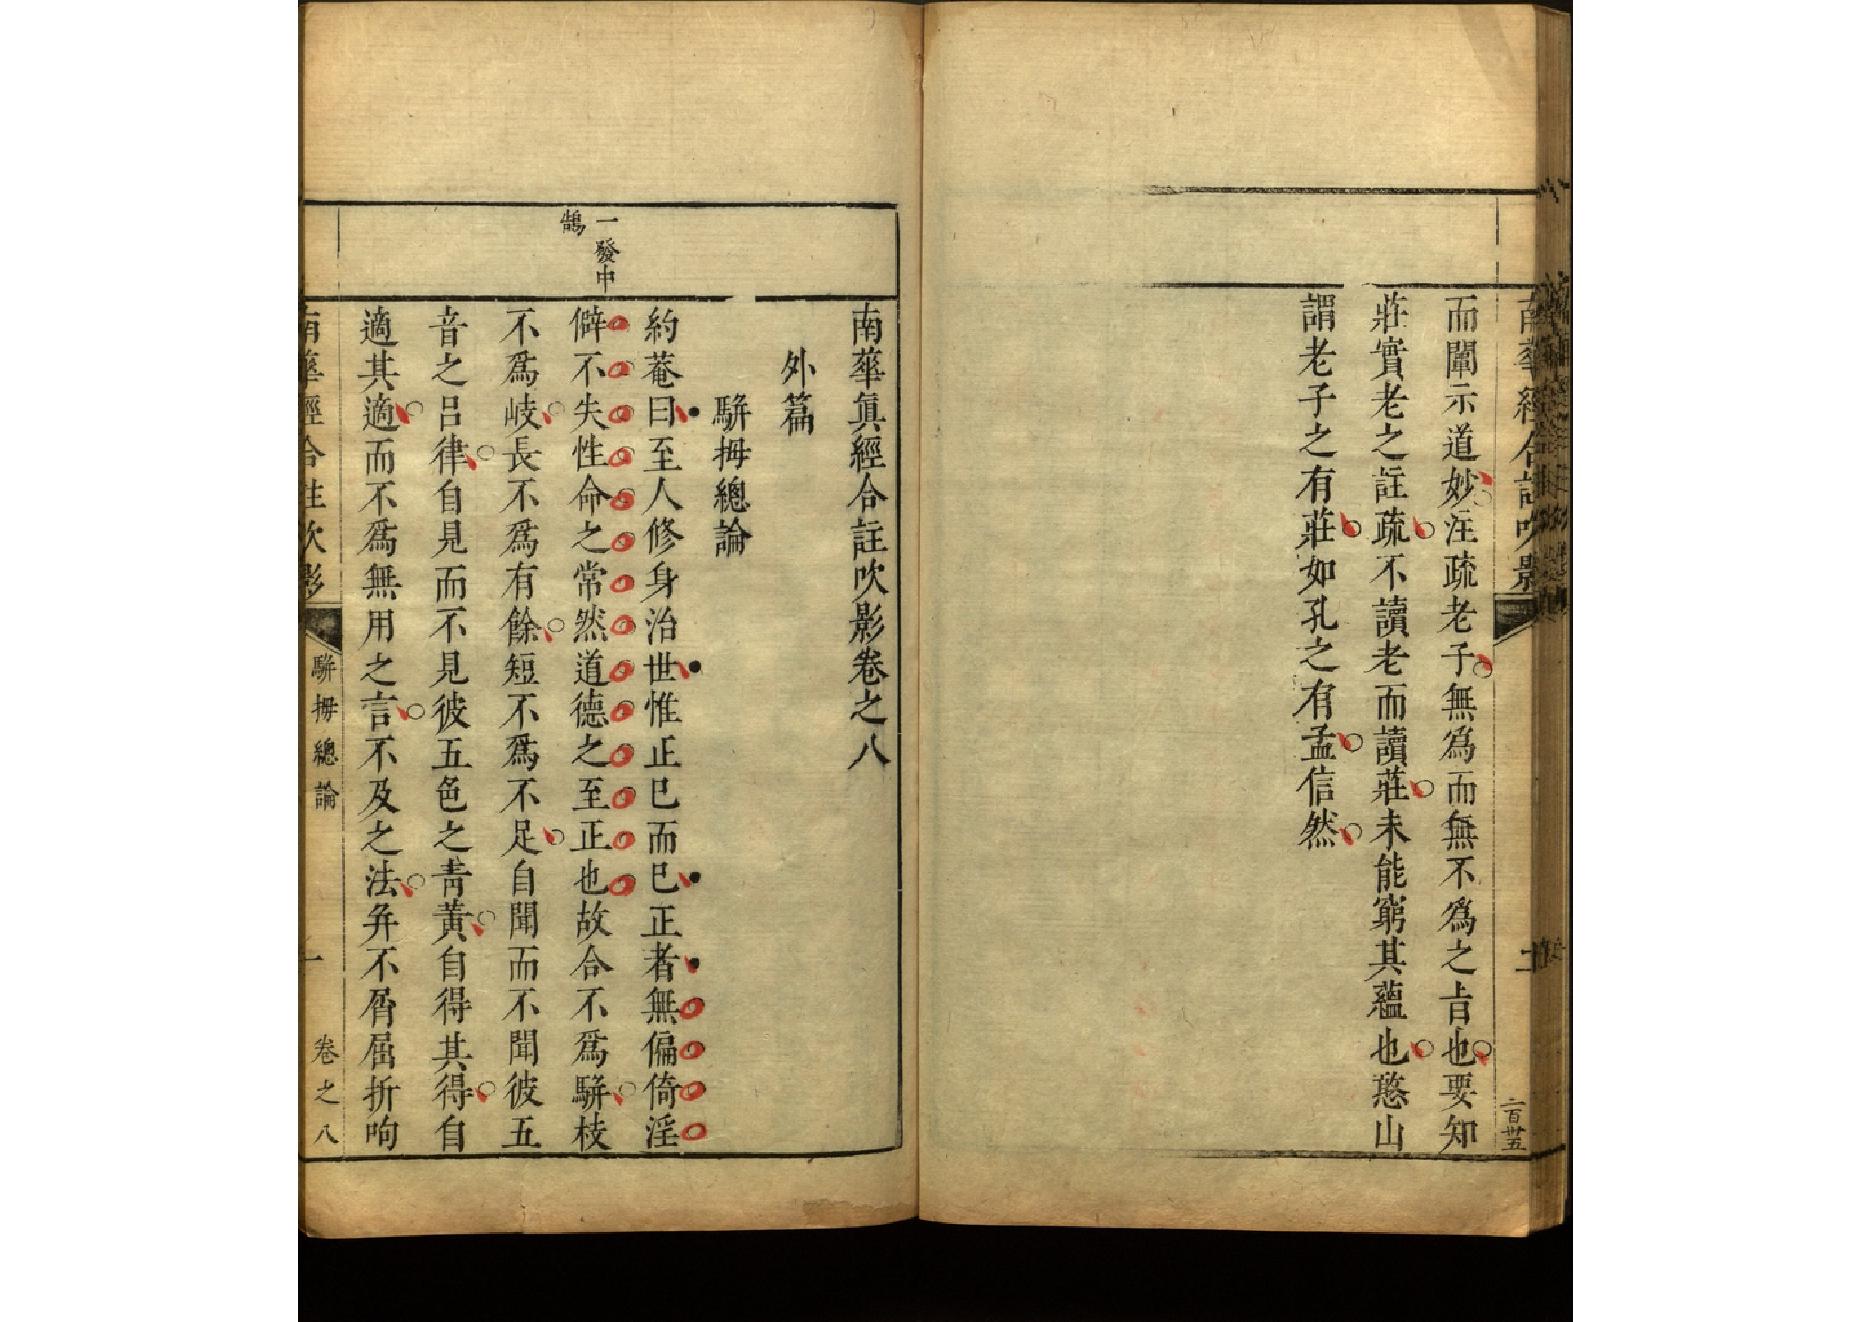 而闡示道妙注疏老子無為而無不為之旨也要知
莊實老之註疏不讀老而讀莊未能窮其蘊也憨山
謂老子之有莊如孔之有孟信然
二百卅五
南華真經合註吹影卷之八
外篇
駢拇總論
一發中
鵠
約菴曰至人修身治世惟正已而已正者無偏倚淫
僻不失性命之常然道德之至正也故合不為駢枝
不為岐長不為有餘短不為不足自聞而不聞彼五
音之呂律自見而不見彼五色之青黃自得其得自
適其適而不為無用之言不及之法弁不屑屈折呴
南華經合註吹影
駢拇總論
一
卷之八